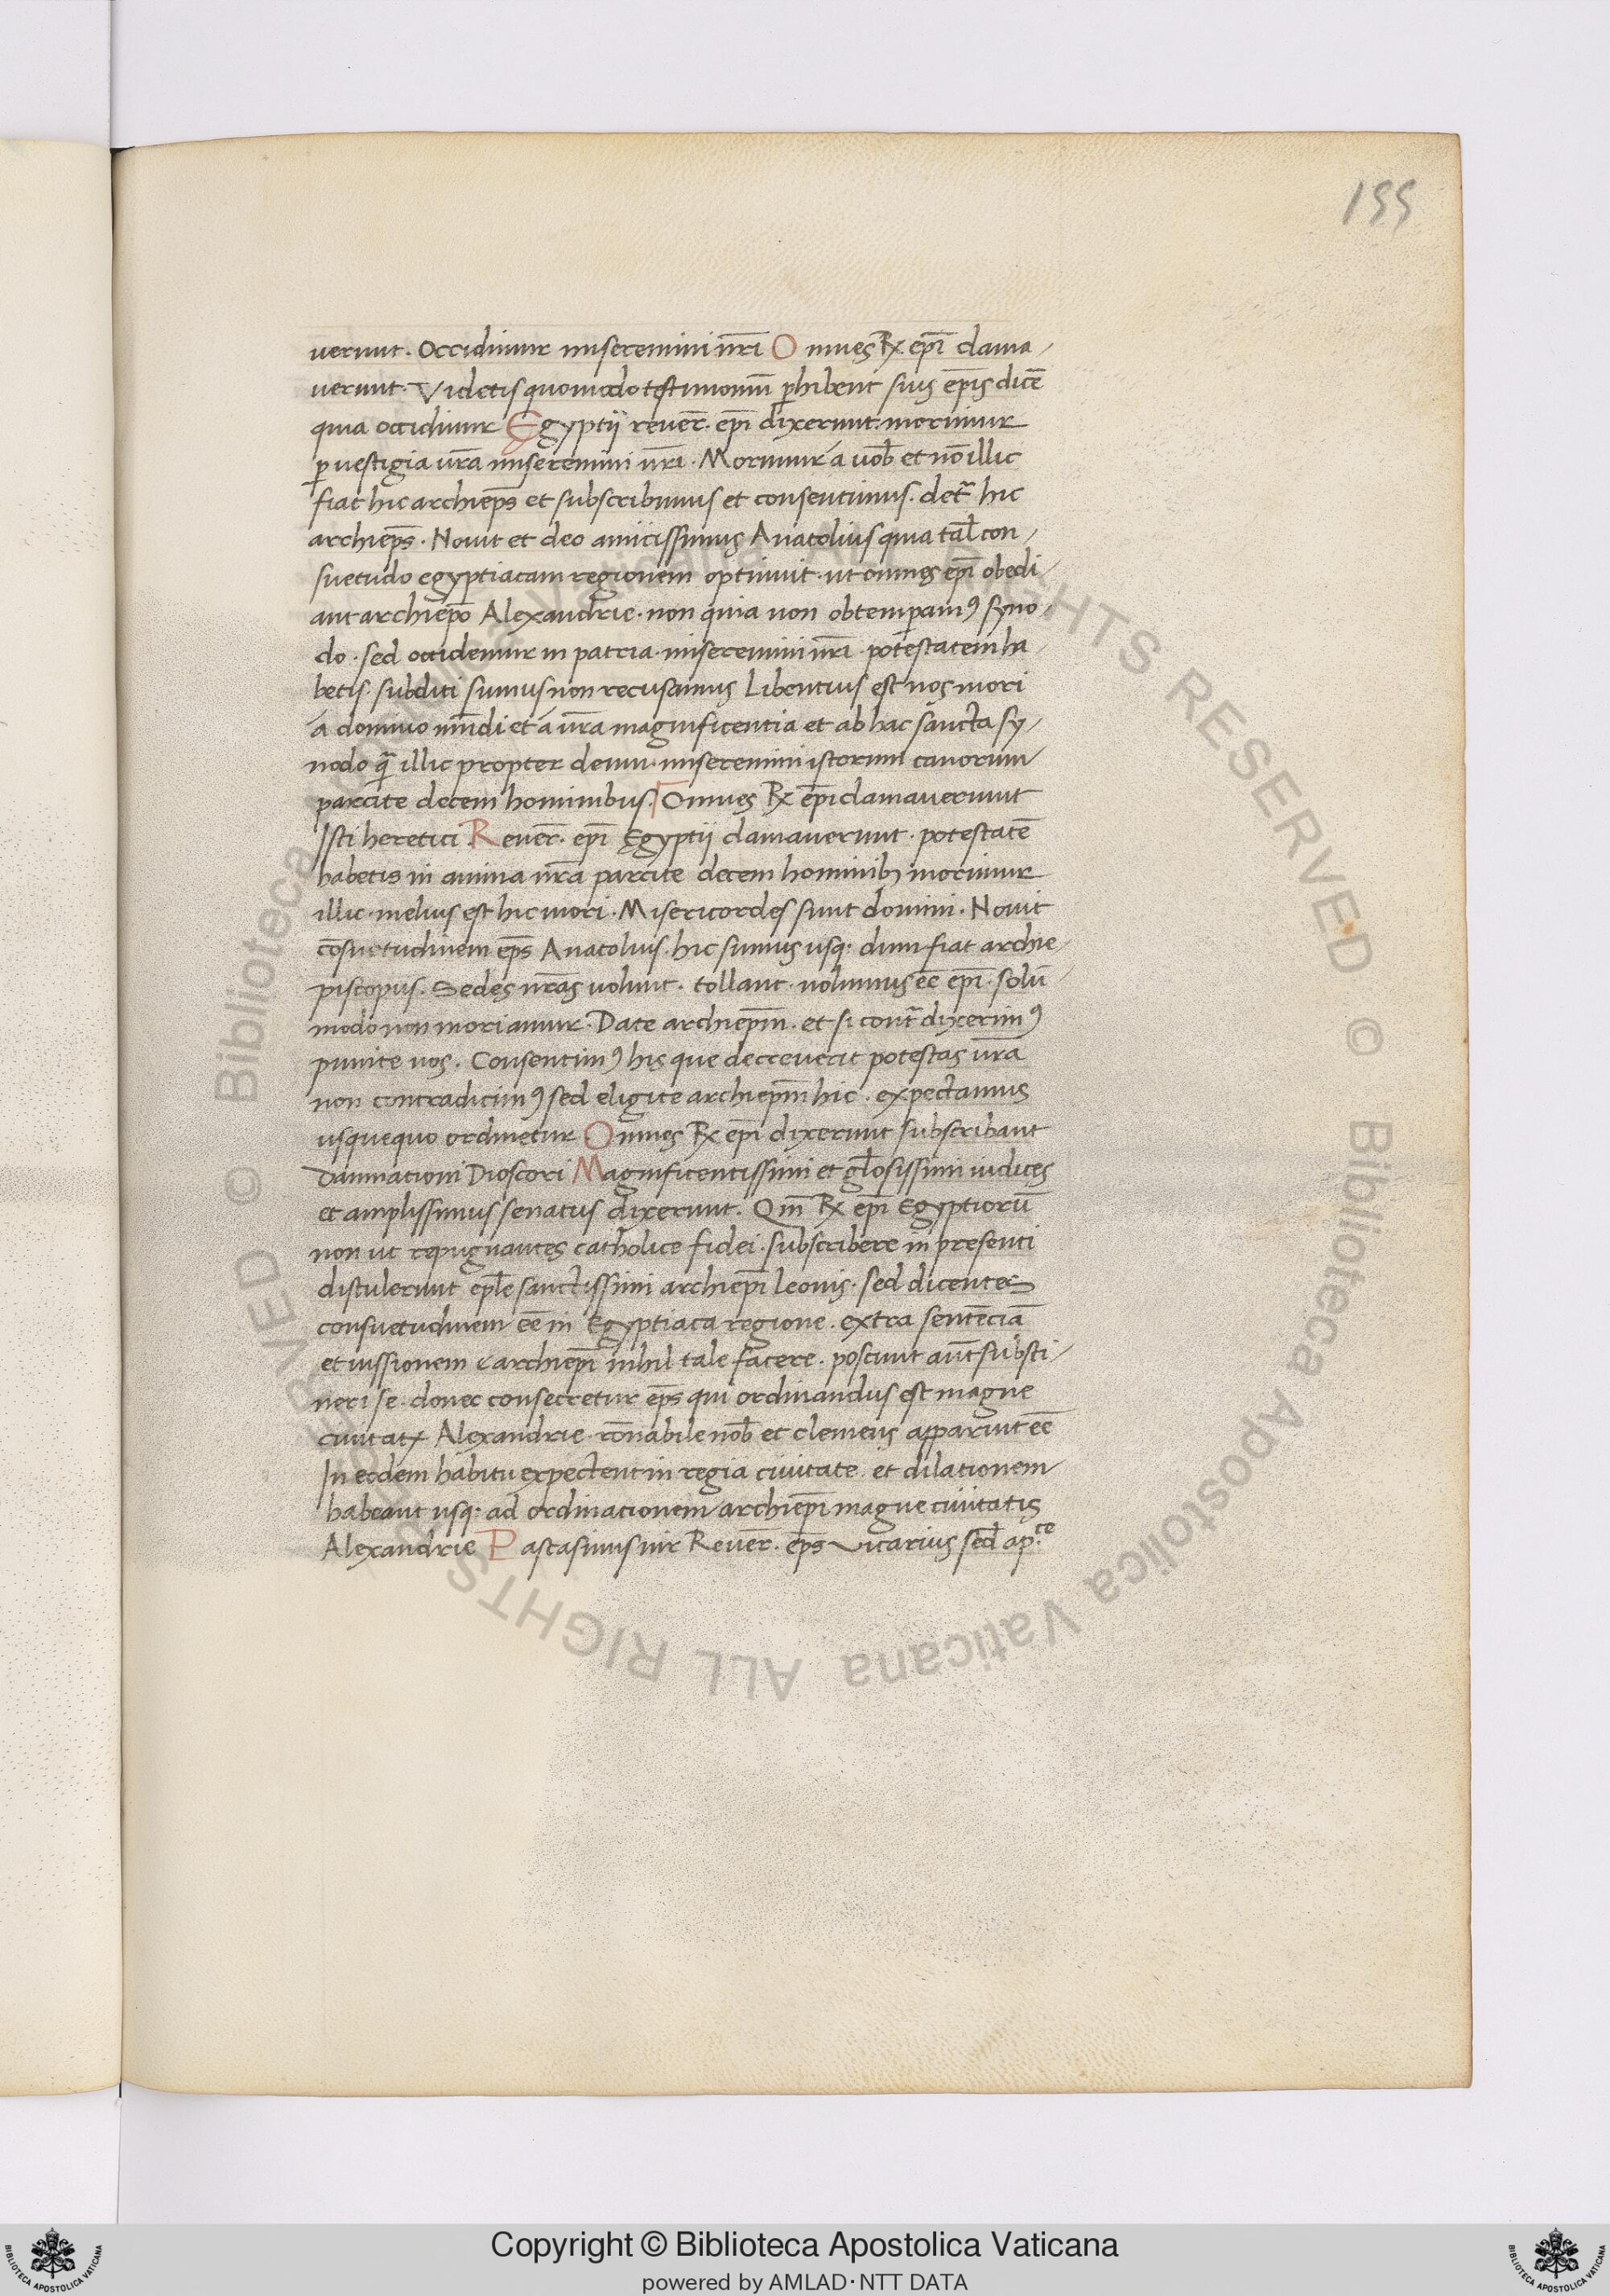 155
uerunt. Occidimur miseremini nr̄i Omnes Rx ep̄i clama-
uerunt. Videtis quomodo testimoniū perhibent suis ep̄is dicē
quia occidimur Egyptij reuer̄. ep̄i dixerunt. morimur
ꝑ uestigia ur̄a miseremini nr̄i. Morimur a uob̄ et nō illic
fiat hic archiep̄s et subscribimus et consentimus. det̄ hic
archiep̄s. Nouit et deo amicissimus Anatolius quia tal̄ con-
suetudo egyptiacam regionem optinuit. ut omnes ep̄i obedi-
ant archiep̄o Alexandrie. non quia non obtemꝑamꝰ syno-
do. sed occidemur in patria. miseremini nr̄i. potestatem ha-
betis. subditi sumus non recusamus Libentius est nos mori
a domino mūdi et a ur̄a magnificentia et ab hac sancta sy-
nodo q̄ illic propter deum. miseremini istorum canorum
parcite decem hominibus. Omnes Rx ep̄i clamauerunt
Isti heretici. Reuer̄. ep̄i Egyptij clamauerunt. potestatē
habetis in anima nr̄a parcite decem hominibꝫ morimur
illic. melius est hic mori. Misericordes sunt domini. Nouit
cōsuetudinem ep̄s Anatolius. hic sumus usq: dum fiat archie-
piscopus. Sedes nr̄as uolunt. tollant. nolumus eē ep̄i. solū-
modo non moriamur. Date archiep̄m. et si cont̄ dixerimꝰ
punite nos. Consentimꝰ his que decreuerit potestas ur̄a
non contradicimꝰ sed eligite archiep̄m hic. expectamus
usquequo ordinetur Omnes Rx ep̄i dixerunt subscribant
damnationi Dioscori Magnificentissimi et gl̄osissimi iudices
et amplissimus senatus dixerunt. Qm̄ Rx ep̄i Egyptiorū
non ut repugnantes catholice fidei. subscribere in presenti
distulerunt ep̄le sanctissimi archiep̄i leonis. sed dicentes
consuetudinem eē in Egyptiaca regione. extra sentēciā
et iussionem archiep̄i nihil tale facere. poscunt aūt substi-
neri se. donec consecretur ep̄s qui ordinandus est magne
ciuitatꝭ Alexandrie. rōnabile nob̄ et clemens apparuit eē
In eodem habitu expectent in regia ciuitate. et dilationem
habeant usq: ad ordinationem archiep̄i magne ciuitatis
Alexandrie Pascasinus uir Reuer̄. ep̄s Vicarius sed̄ ap.ce
Copyright © Biblioteca Apostolica Vaticana
powered by AMLAD·NTT DATA
© Biblioteca Apostolica Vaticana ALL RIGHTS RESERVED © Biblioteca Apostolica Vaticana ALL RIGHTS RESERVED
BIBLIOTECA APOSTOLICA VATICANA
BIBLIOTECA APOSTOLICA VATICANA